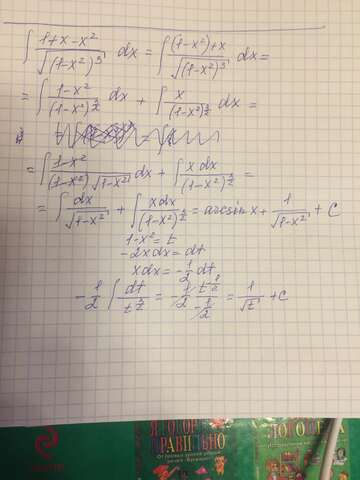 ∫ (1+x-x²)/√((1-x²)³) dx = ∫ ((1-x²)+x)/√((1-x²)³) dx =
= ∫ (1-x²)/(1-x²)^(3/2) dx + ∫ x/(1-x²)^(3/2) dx =
= ∫ (1-x²)/((1-x²)√(1-x²)) dx + ∫ x dx/(1-x²)^(3/2) =
= ∫ dx/√(1-x²) + ∫ xdx/(1-x²)^(3/2) = arcsin x + 1/√(1-x²) + C
1-x² = t
-2xdx = dt
xdx = -1/2 dt
-1/2 ∫ dt/t^(3/2) = -1/2 t^(-1/2)/(-1/2) = 1/√t + C
Я ГОВОРЮ
ПРАВИЛЬНО